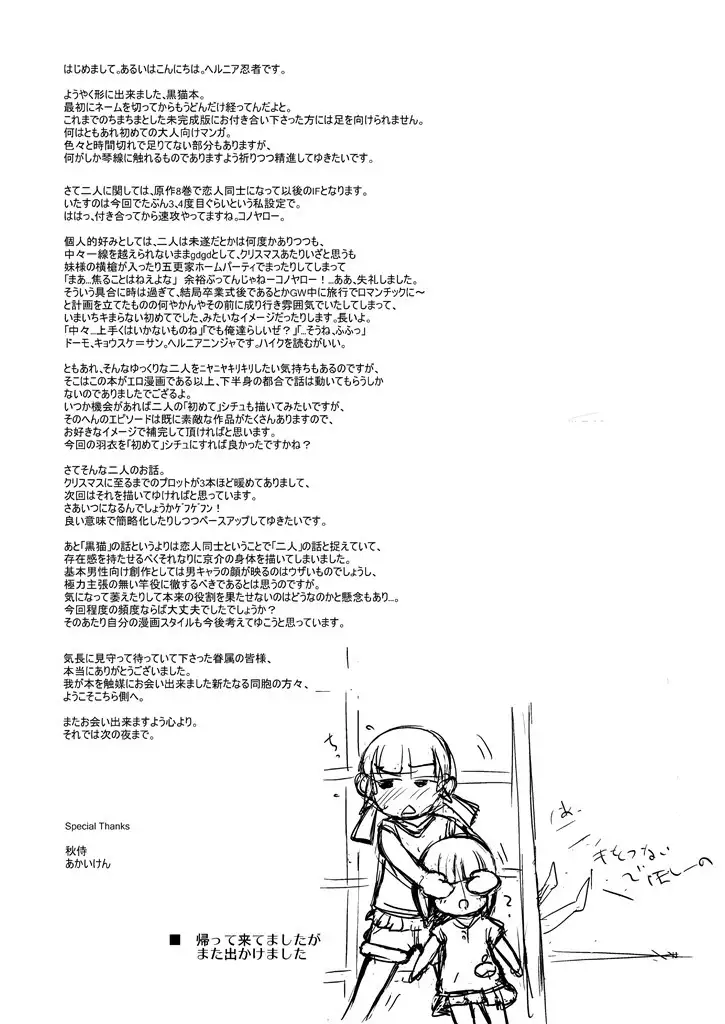 はじめまして。あるいはこんにちは。ヘルニア忍者です。
ようやく形に出来ました、黒猫本。
最初にネームを切ってからもうどんだけ経ってんだよと。
これまでのちまちまとした未完成版にお付き合い下さった方には足を向けられません。
何はともあれ初めての大人向けマンガ。
色々と時間切れで足りてない部分もありますが、
何がしか琴線に触れるものでありますよう祈りつつ精進してゆきたいです。
さて二人に関しては、原作8巻で恋人同士になって以後のIFとなります。
いたすのは今回でたぶん3、4度目ぐらいという私設定で。
ははっ、付き合ってから速攻やってますね。コノヤロー。
個人的好みとしては、二人は未遂だとかは何度かありつつも、
中々一線を越えられないままgdgdとして、クリスマスあたりいざと思うも
妹様の横槍が入ったり五更家ホームパーティでまったりしてしまって
「まあ…焦ることはねえよな」 余裕ぶってんじゃねーコノヤロー！…ああ、失礼しました。
そういう具合に時は過ぎて、結局卒業式後であるとかGW中に旅行でロマンチックに～
と計画を立てたものの何やかんやその前に成り行き雰囲気でいたしてしまって、
いまいちキまらない初めてでした、みたいなイメージだったりします。長いよ。
「中々…上手くはいかないものね」「でも俺達らしいぜ？」「…そうね、ふふっ」
ドーモ、キョウスケ＝サン。ヘルニアニンジャです。ハイクを読むがいい。
ともあれ、そんなゆっくりな二人をニヤニヤキリキリしたい気持ちもあるのですが、
そこはこの本がエロ漫画である以上、下半身の都合で話は動いてもらうしか
ないのでありましたでござるよ。
いつか機会があれば二人の「初めて」シチュも描いてみたいですが、
そのへんのエピソードは既に素敵な作品がたくさんありますので、
お好きなイメージで補完して頂ければと思います。
今回の羽衣を「初めて」シチュにすれば良かったですかね？
さてそんな二人のお話。
クリスマスに至るまでのプロットが3本ほど暖めてありまして、
次回はそれを描いてゆければと思っています。
さあいつになるんでしょうかｹﾞﾌｹﾞﾌﾝ！
良い意味で簡略化したりしつつペースアップしてゆきたいです。
あと「黒猫」の話というよりは恋人同士ということで「二人」の話と捉えていて、
存在感を持たせるべくそれなりに京介の身体を描いてしまいました。
基本男性向け創作としては男キャラの顔が映るのはウザいものでしょうし、
極力主張の無い竿役に徹するべきであるとは思うのですが。
気になって萎えたりして本来の役割を果たせないのはどうなのかと懸念もあり…。
今回程度の頻度ならば大丈夫でしたでしょうか？
そのあたり自分の漫画スタイルも今後考えてゆこうと思っています。
気長に見守って待っていて下さった眷属の皆様、
本当にありがとうございました。
我が本を触媒にお会い出来ました新たなる同胞の方々、
ようこそこちら側へ。
またお会い出来ますよう心より。
それでは次の夜まで。
Special Thanks
秋侍
あかいけん
■ 帰って来てましたが
また出かけました